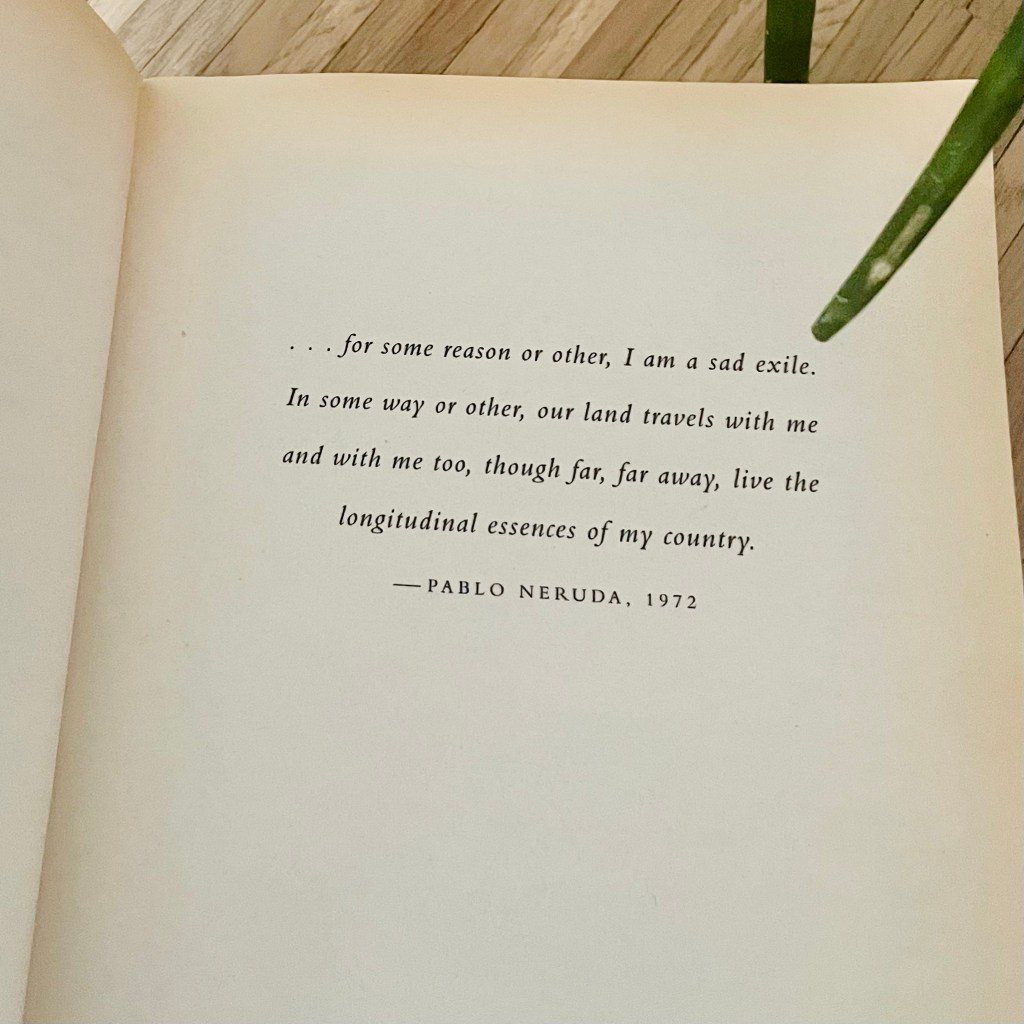 . . . for some reason or other, I am a sad exile.
In some way or other, our land travels with me
and with me too, though far, far away, live the
longitudinal essences of my country.
—PABLO NERUDA, 1972